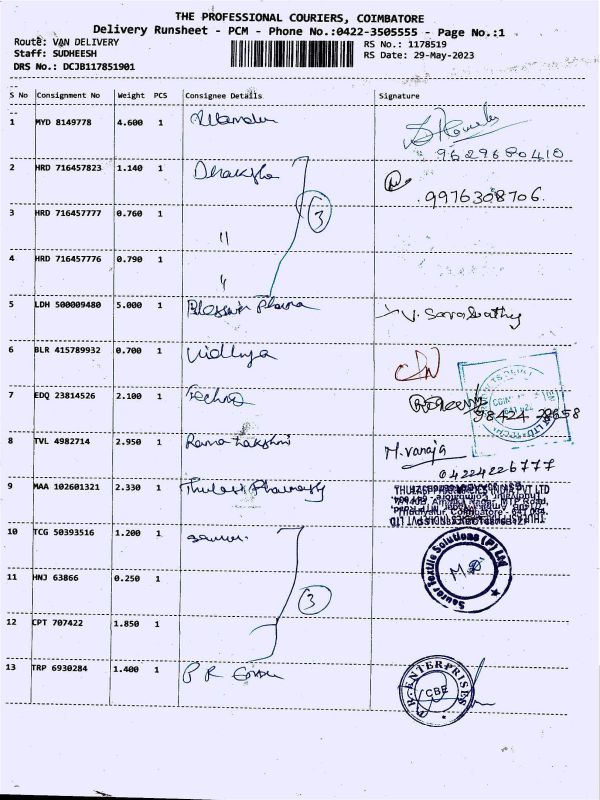 THE PROFESSIONAL COURIERS, COIMBATORE
Delivery Runsheet - PCM - Phone No.:0422-3505555 - Page No.:1
Route: VAN DELIVERY RS No.: 1178519
Staff: SUDHEESH RS Date: 29-May-2023
DRS No.: DCJB117851901
S No Consignment No Weight PCS Consignee Details Signature
1 MYD 8149778 4.600 1
9629680410
2 HRD 716457823 1.140 1 Dhaksha
9976308706
3 HRD 716457777 0.760 1 " 3
4 HRD 716457776 0.790 1 "
5 LDH 500009480 5.000 1 Blessin Pharma V. Sarabathy
6 BLR 415789932 0.700 1 Vidhya
7 EDQ 23814526 2.100 1 Techno
98424 28658
8 TVL 4982714 2.950 1 Rama Lakshmi M. Vanaja
04224226777
9 MAA 102601321 2.330 1 Thulasi Pharmacy
10 TCG 50393516 1.200 1
Saurer Textile Solutions (P) Ltd
11 HNJ 63866 0.250 1 3
12 CPT 707422 1.850 1
13 TRP 6930284 1.400 1 P R
ENTERPRISES
CBE